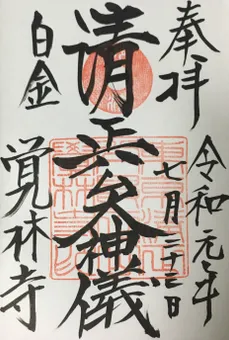 奉拝
令和元年
七月二十三日
清正公大神儀
白金
覚林寺